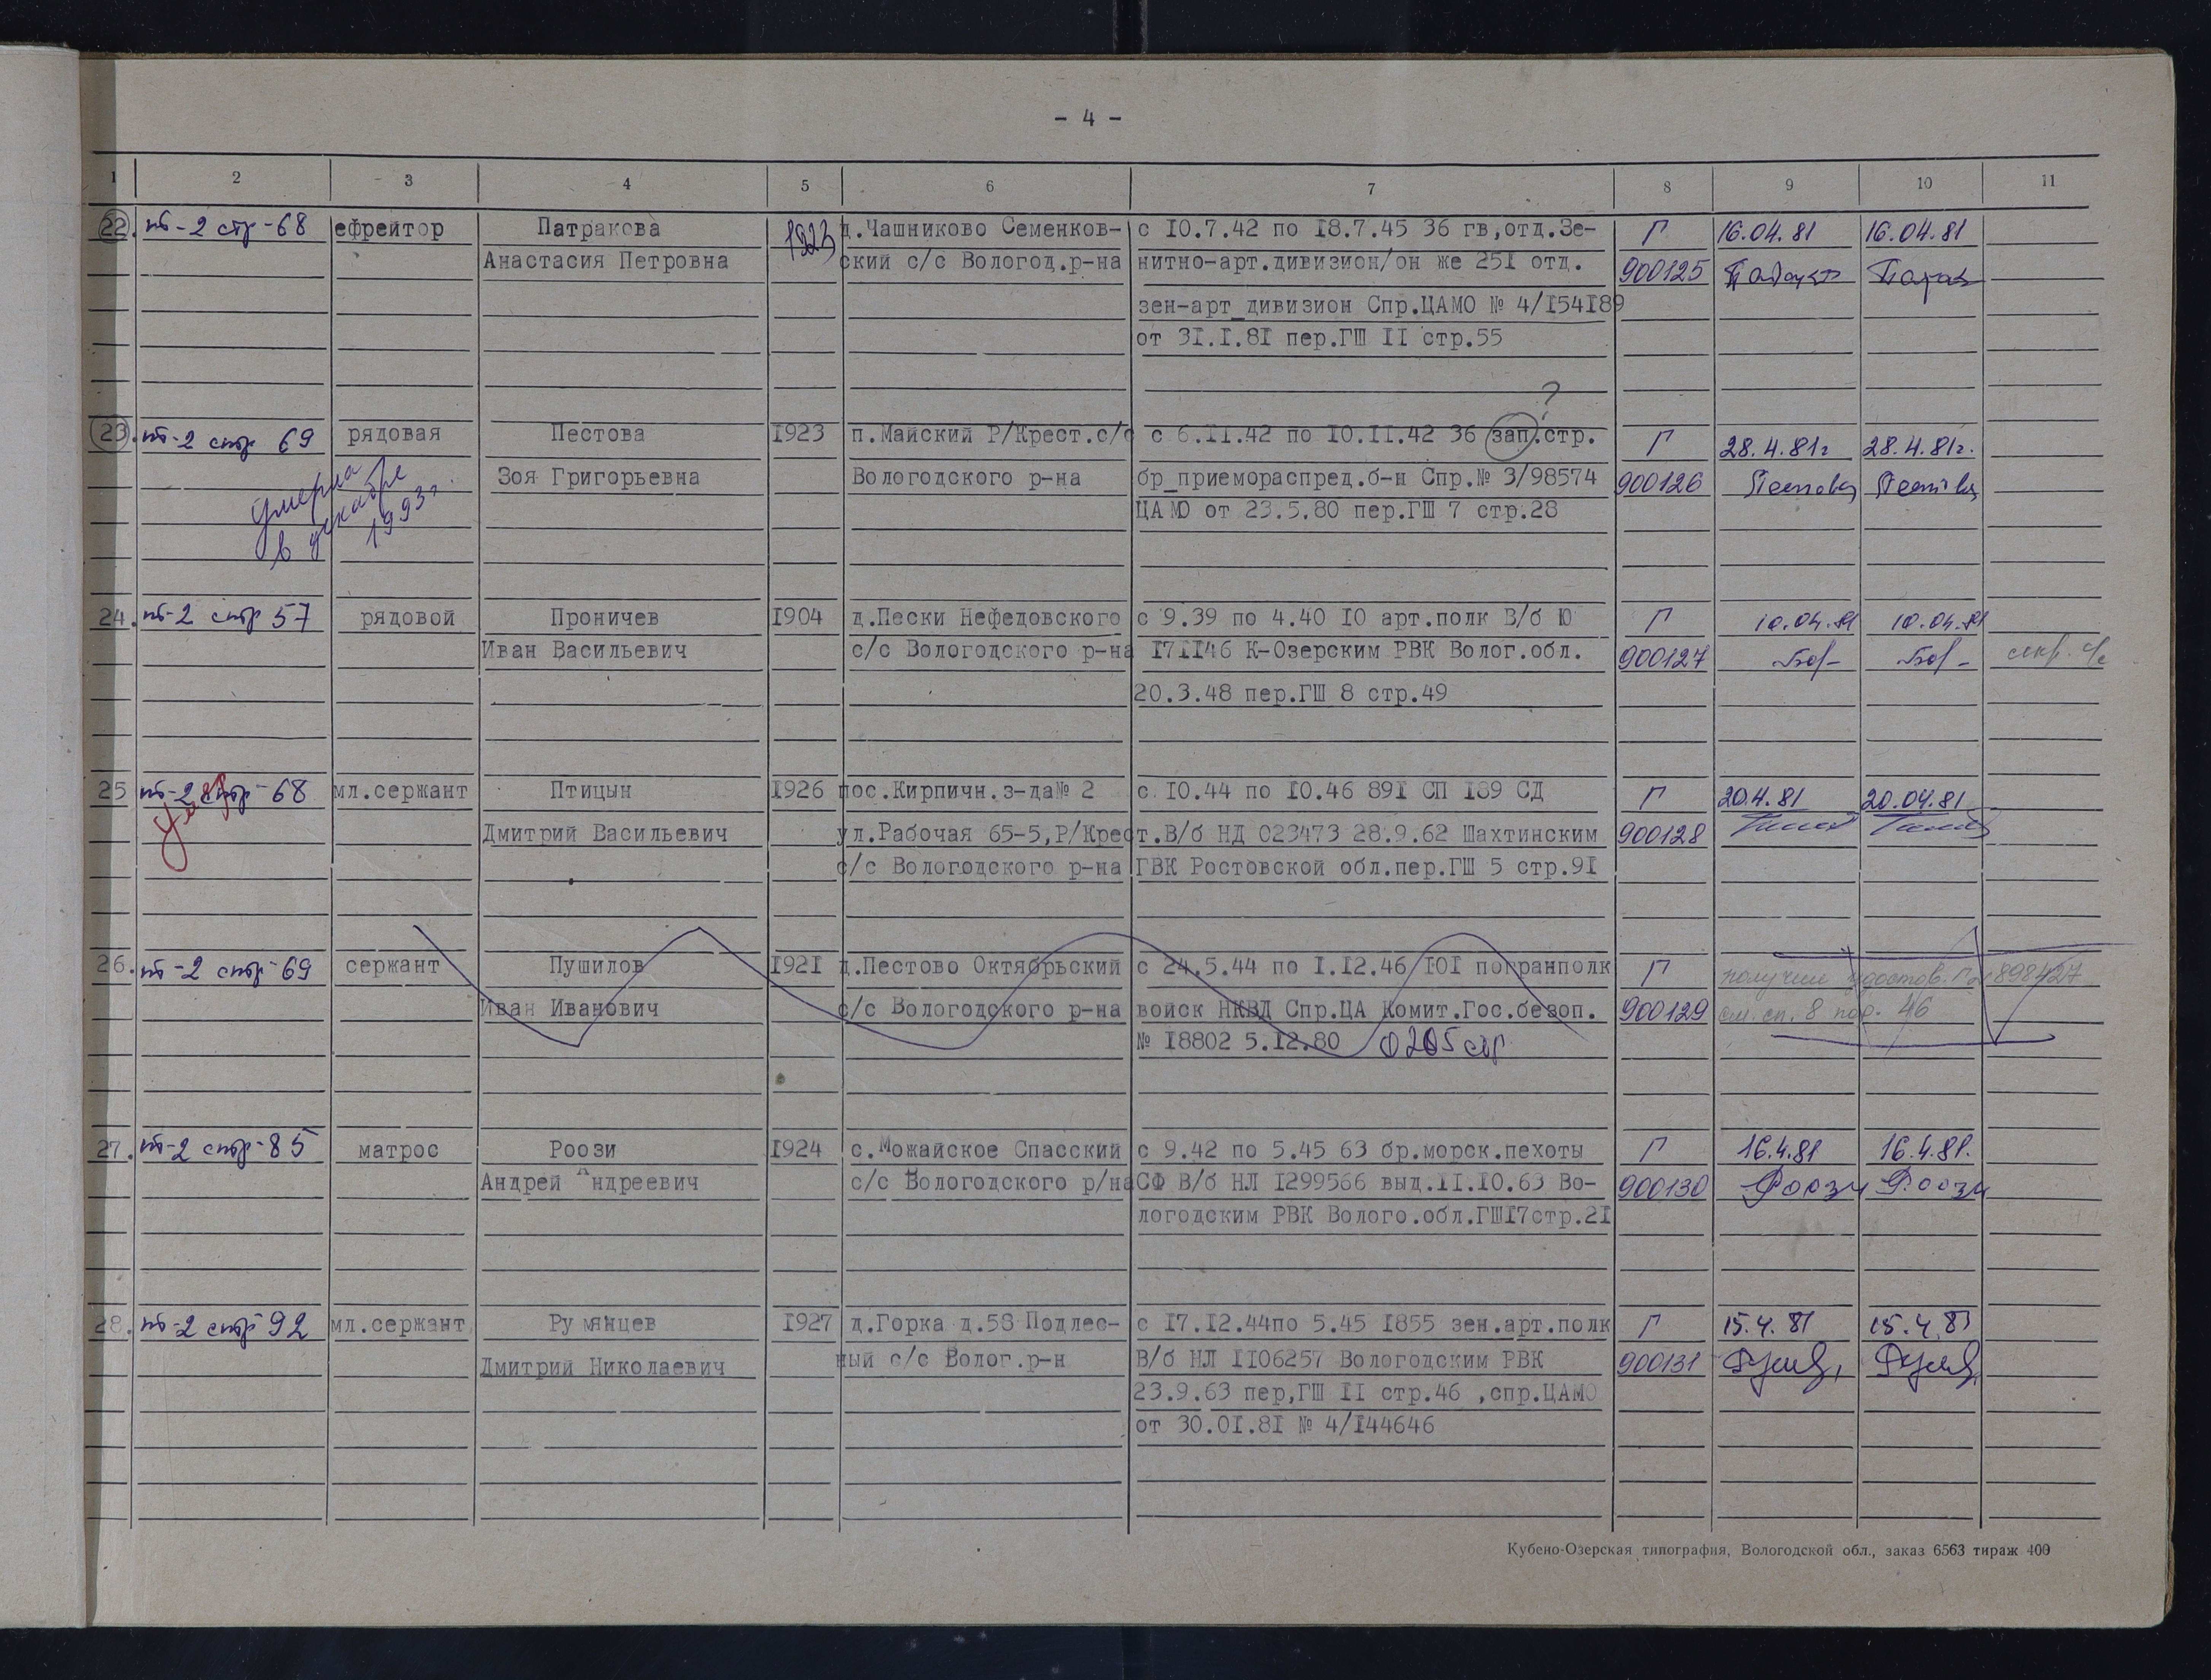 - 4 -
1 2 3 4 5 6 7 8 9 10 11
22. пб-2 стр-68 ефрейтор Патракова 1923 д.Чашниково Семенков- с 10.7.42 по 18.7.45 36 гв,отд.Зе- Г 16.04.81 16.04.81
Анастасия Петровна ский с/с Вологод.р-на нитно-арт.дивизион/он же 251 отд. 900125
зен-арт_дивизион Спр.ЦАМО № 4/154189
от 31.1.81 пер.ГШ 11 стр.55
?
23. пб-2 стр 69 рядовая Пестова 1923 п.Майский Р/Крест.с/с с 6.11.42 по 10.11.42 36 зап.стр. Г 28.4.81г 28.4.81г.
Зоя Григорьевна Вологодского р-на бр_приемораспред.б-н Спр.№ 3/98574 900126 Пестова Пестова
умерла
в декабре
1993г.
ЦАМО от 23.5.80 пер.ГШ 7 стр.28
24. пб-2 стр 57 рядовой Проничев 1904 д.Пески Нефедовского с 9.39 по 4.40 10 арт.полк В/б Ю Г 10.04.81 10.04.81
Иван Васильевич с/с Вологодского р-на 171146 К-Озерским РВК Волог.обл. 900127 секр. с/с
20.3.48 пер.ГШ 8 стр.49
25 пб-2 стр-68 мл.сержант Птицын 1926 пос.Кирпичн.з-да№ 2 с 10.44 по 10.46 891 СП 189 СД Г 20.4.81 20.04.81
Дмитрий Васильевич ул.Рабочая 65-5,Р/Крест.В/б НД 023473 28.9.62 Шахтинским 900128
с/с Вологодского р-на ГВК Ростовской обл.пер.ГШ 5 стр.91
26. пб-2 стр-69 сержант Пушилов 1921 д.Пестово Октябрьский с 24.5.44 по 1.12.46 101 погранполк Г получил удостов. 898427
Иван Иванович с/с Вологодского р-на войск НКВД Спр.ЦА Комит.Гос.безоп. 900129 см. сп. 8 пор. 46
№ 18802 5.12.80
27. пб-2 стр-85 матрос Роози 1924 с.Можайское Спасский с 9.42 по 5.45 63 бр.морск.пехоты Г 16.4.81 16.4.81.
Андрей Андреевич с/с Вологодского р/на СФ В/б НЛ 1299566 выд.11.10.63 Во- 900130 Роози Роози
логодским РВК Волого.обл.ГШ17стр.21
28. пб-2 стр-92 мл.сержант Румянцев 1927 д.Горка д.58 Подлес- с 17.12.44по 5.45 1855 зен.арт.полк Г 15.4.81 15.4.81
Дмитрий Николаевич ный с/с Волог.р-н В/б НЛ 1106257 Вологодским РВК 900131
23.9.63 пер,ГШ 11 стр.46 ,спр.ЦАМО
от 30.01.81 № 4/144646
Кубено-Озерская типография, Вологодской обл., заказ 6563 тираж 400